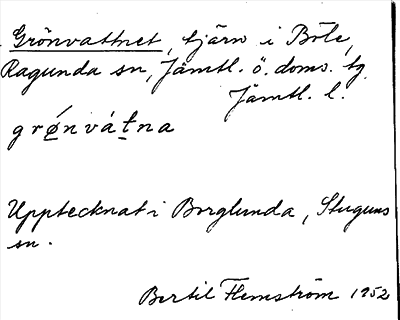 Grönvattnet, tjärn i Böle,
Ragunda sn, Jämtl. ö. doms. tg
Jämtl. l.
grǿnvát̲na
Upptecknat i Borglunda, Stuguns
sn.
Bertil Flemström 1952